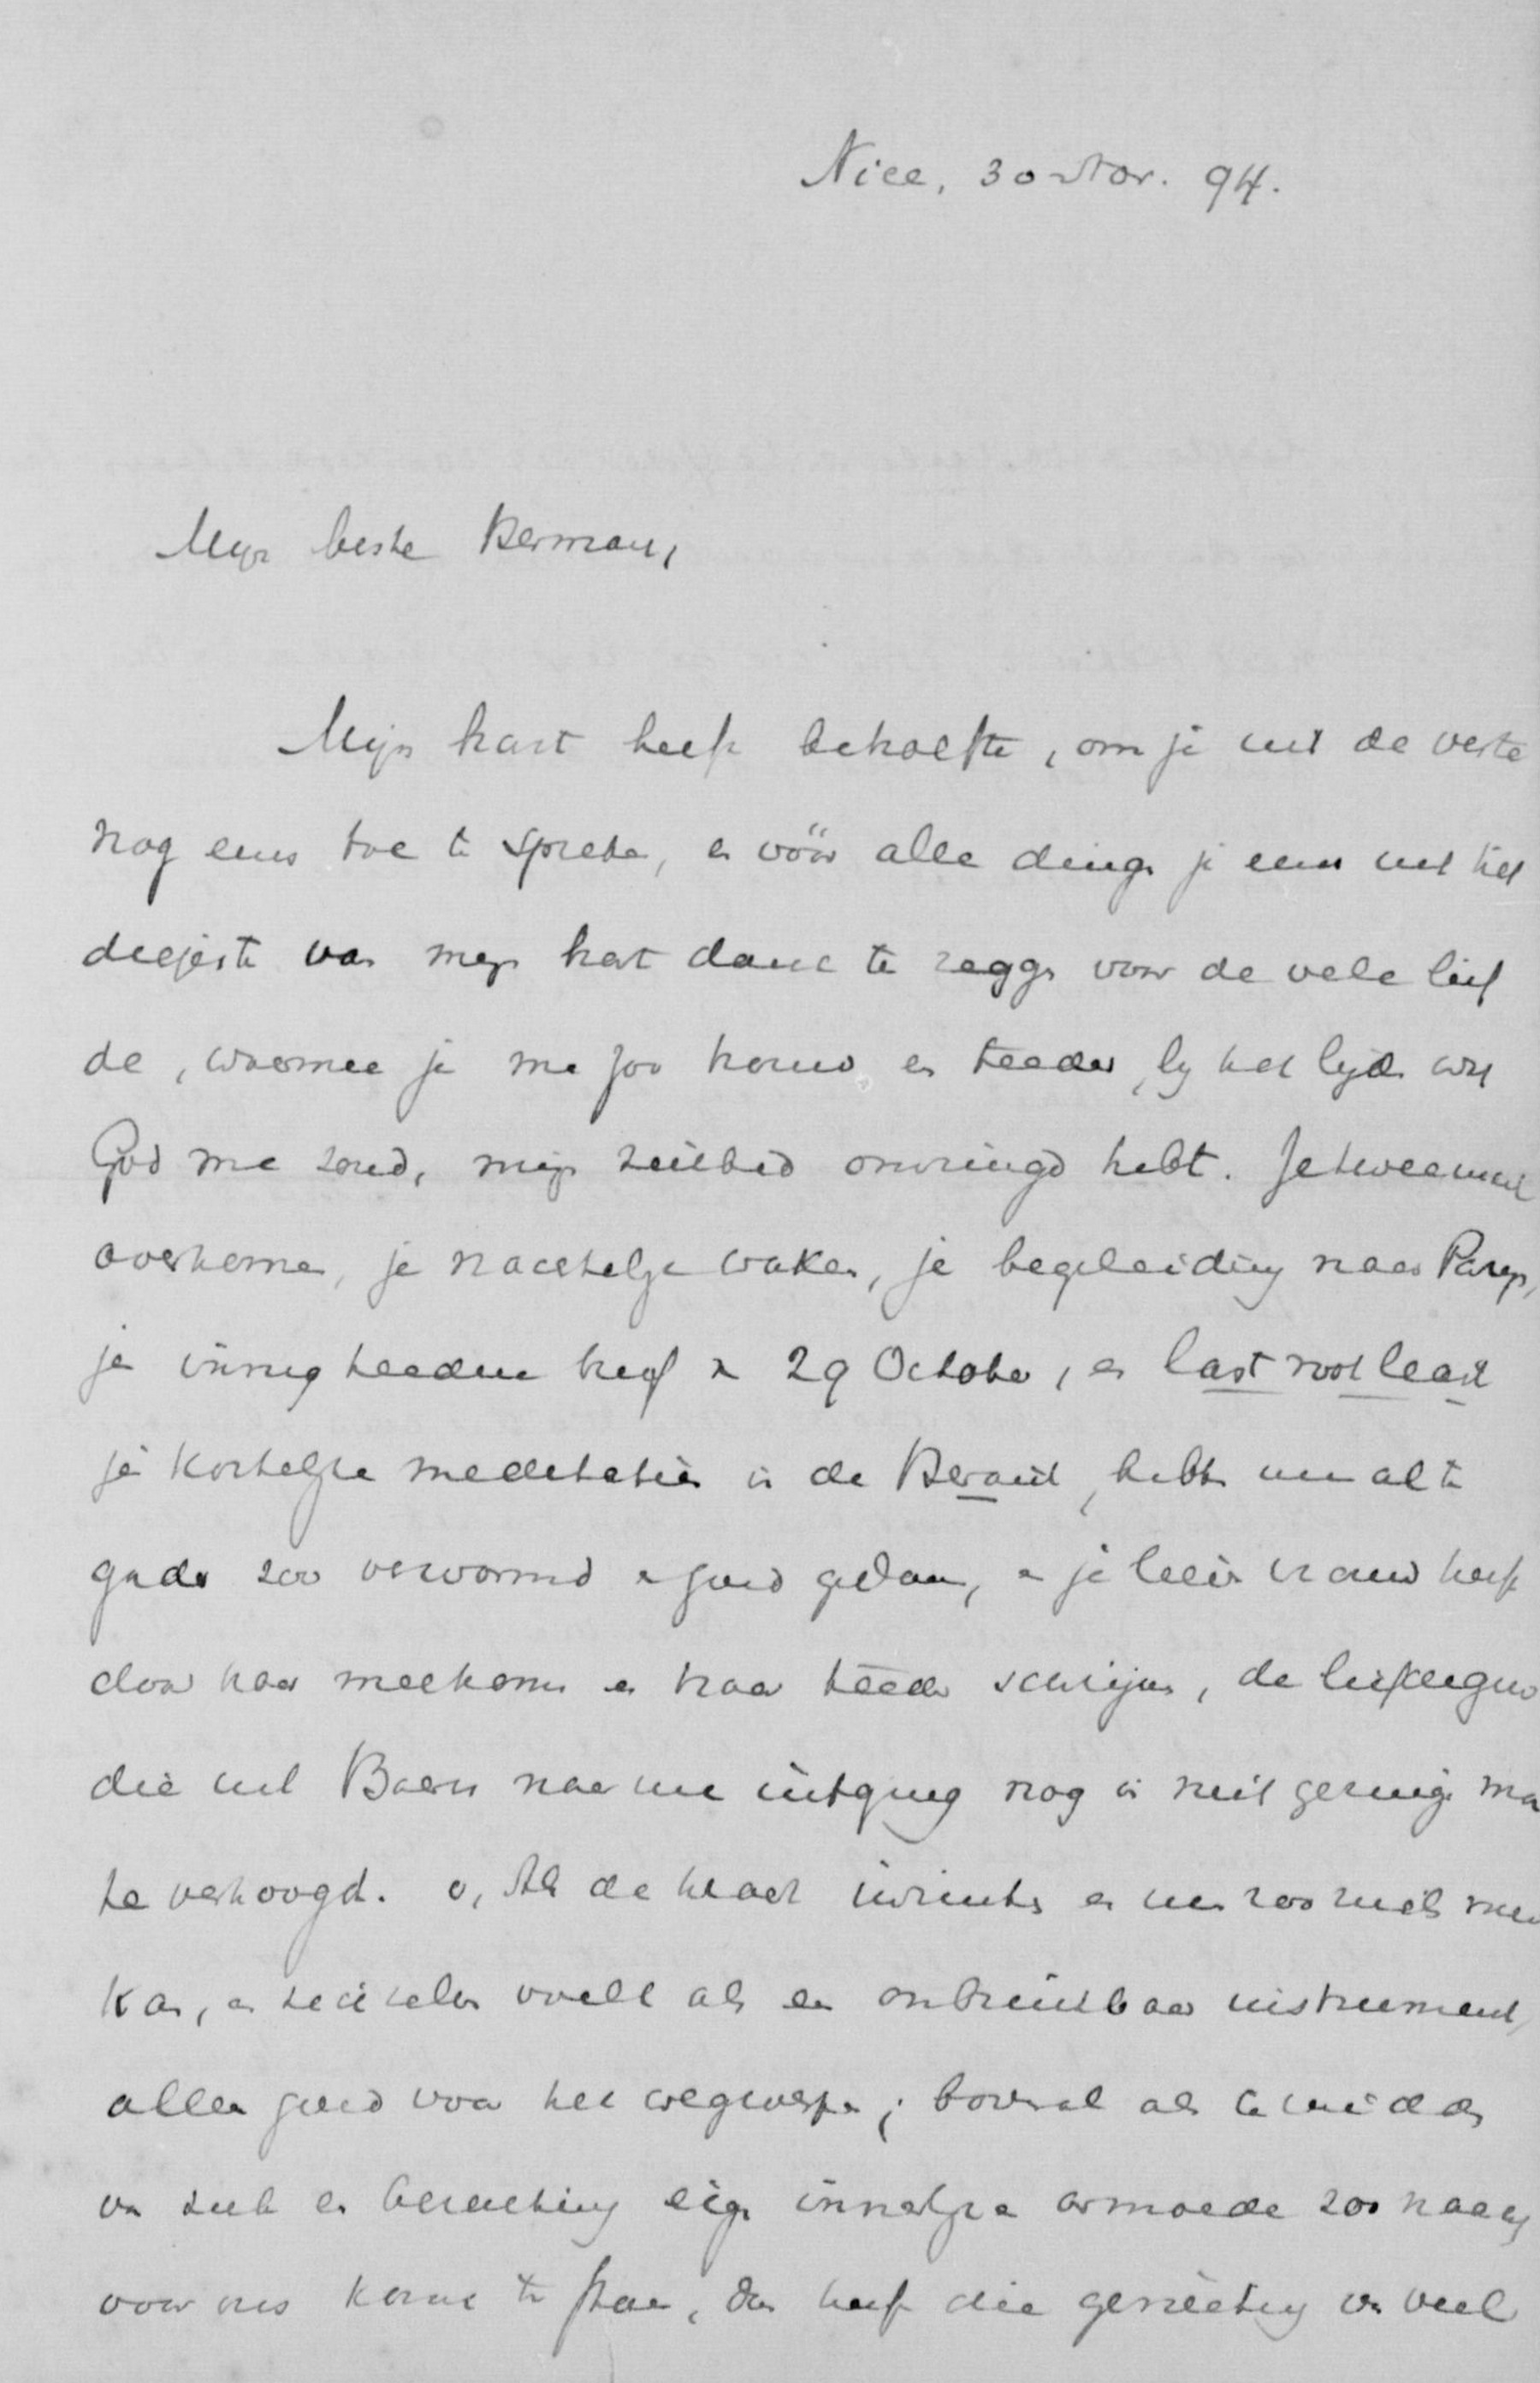 Nice, 30 Nov. 94.
Mijn beste Herman,
Mijn hart heeft behoefte, om je uit de verte
nog eens toe te spreken, en vóór alle dingen je eens uit het
diepste van mijn hart dank te zeggen voor de vele lief
de, waarmee je me zoo trouw en teeder, bij het lijden wat
God me zond, mijn ziekbed omringd hebt. Je tweemaal
overkomen, je nachtelijk waken, je begeleiding naar Parijs,
je innig teedere brief van 29 October, en last not least
je kostelijke meditatiën in de Heraut, hebben me al te
gader zoo verwarmd en goed gedaan, en je lieve vrouw heeft
door haar meekomen en haar teeder schrijven, de liefde
die uit Baarn naar me uitging nog in niet geringe ma
te verhoogd. o, Als de kracht en men zoo niets meer
kan, en zich zelven voelt als een onbruikbaar instrument,
alleen goed voor het wegwerpen; bovenal als te midden
van zulk een bezoeking eigen innerlijke armoede zoo naakt
voor ons komt te staan, dan heeft die van veel